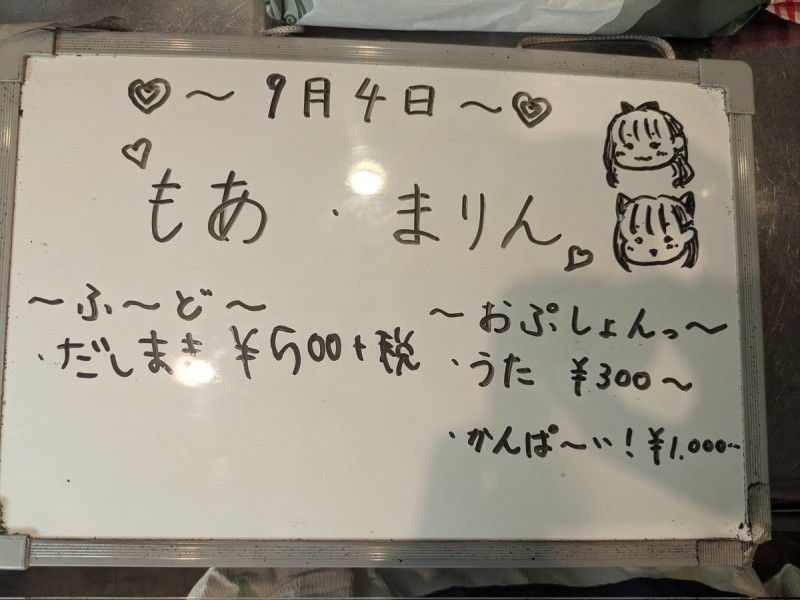 ～9月4日～
もあ・まりん
～ふ～ど～
・だしまき ¥500+税
～おぷしょんっ～
・うた ¥300～
・かんぱ～い！¥1.000～